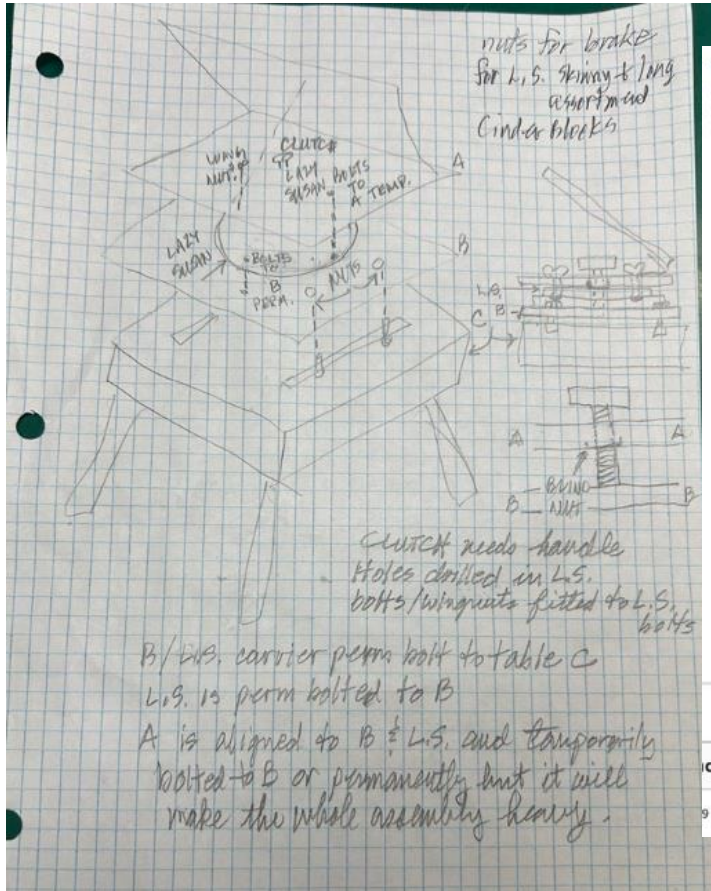 nuts for brake
for L.S. skinny & long
assortmed
Cinder Blocks
WING
NUT.
CLUTCH
LAZY
SUSAN BOLTS
TO
A TEMP.
A
LAZY
SUSAN
BOLTS
TO
B
PERM.
NUTS
B
C
L.S.
B
A
A
A
BLIND
NUT
B
B
CLUTCH needs handle
Holes drilled in L.S.
bolts/wingnuts fitted to L.S.
bolts
B/L.S. carrier perm bolt to table C
L.S. is perm bolted to B
A is aligned to B & L.S. and temporarily
bolted to B or permanently but it will
make the whole assembly heavy.